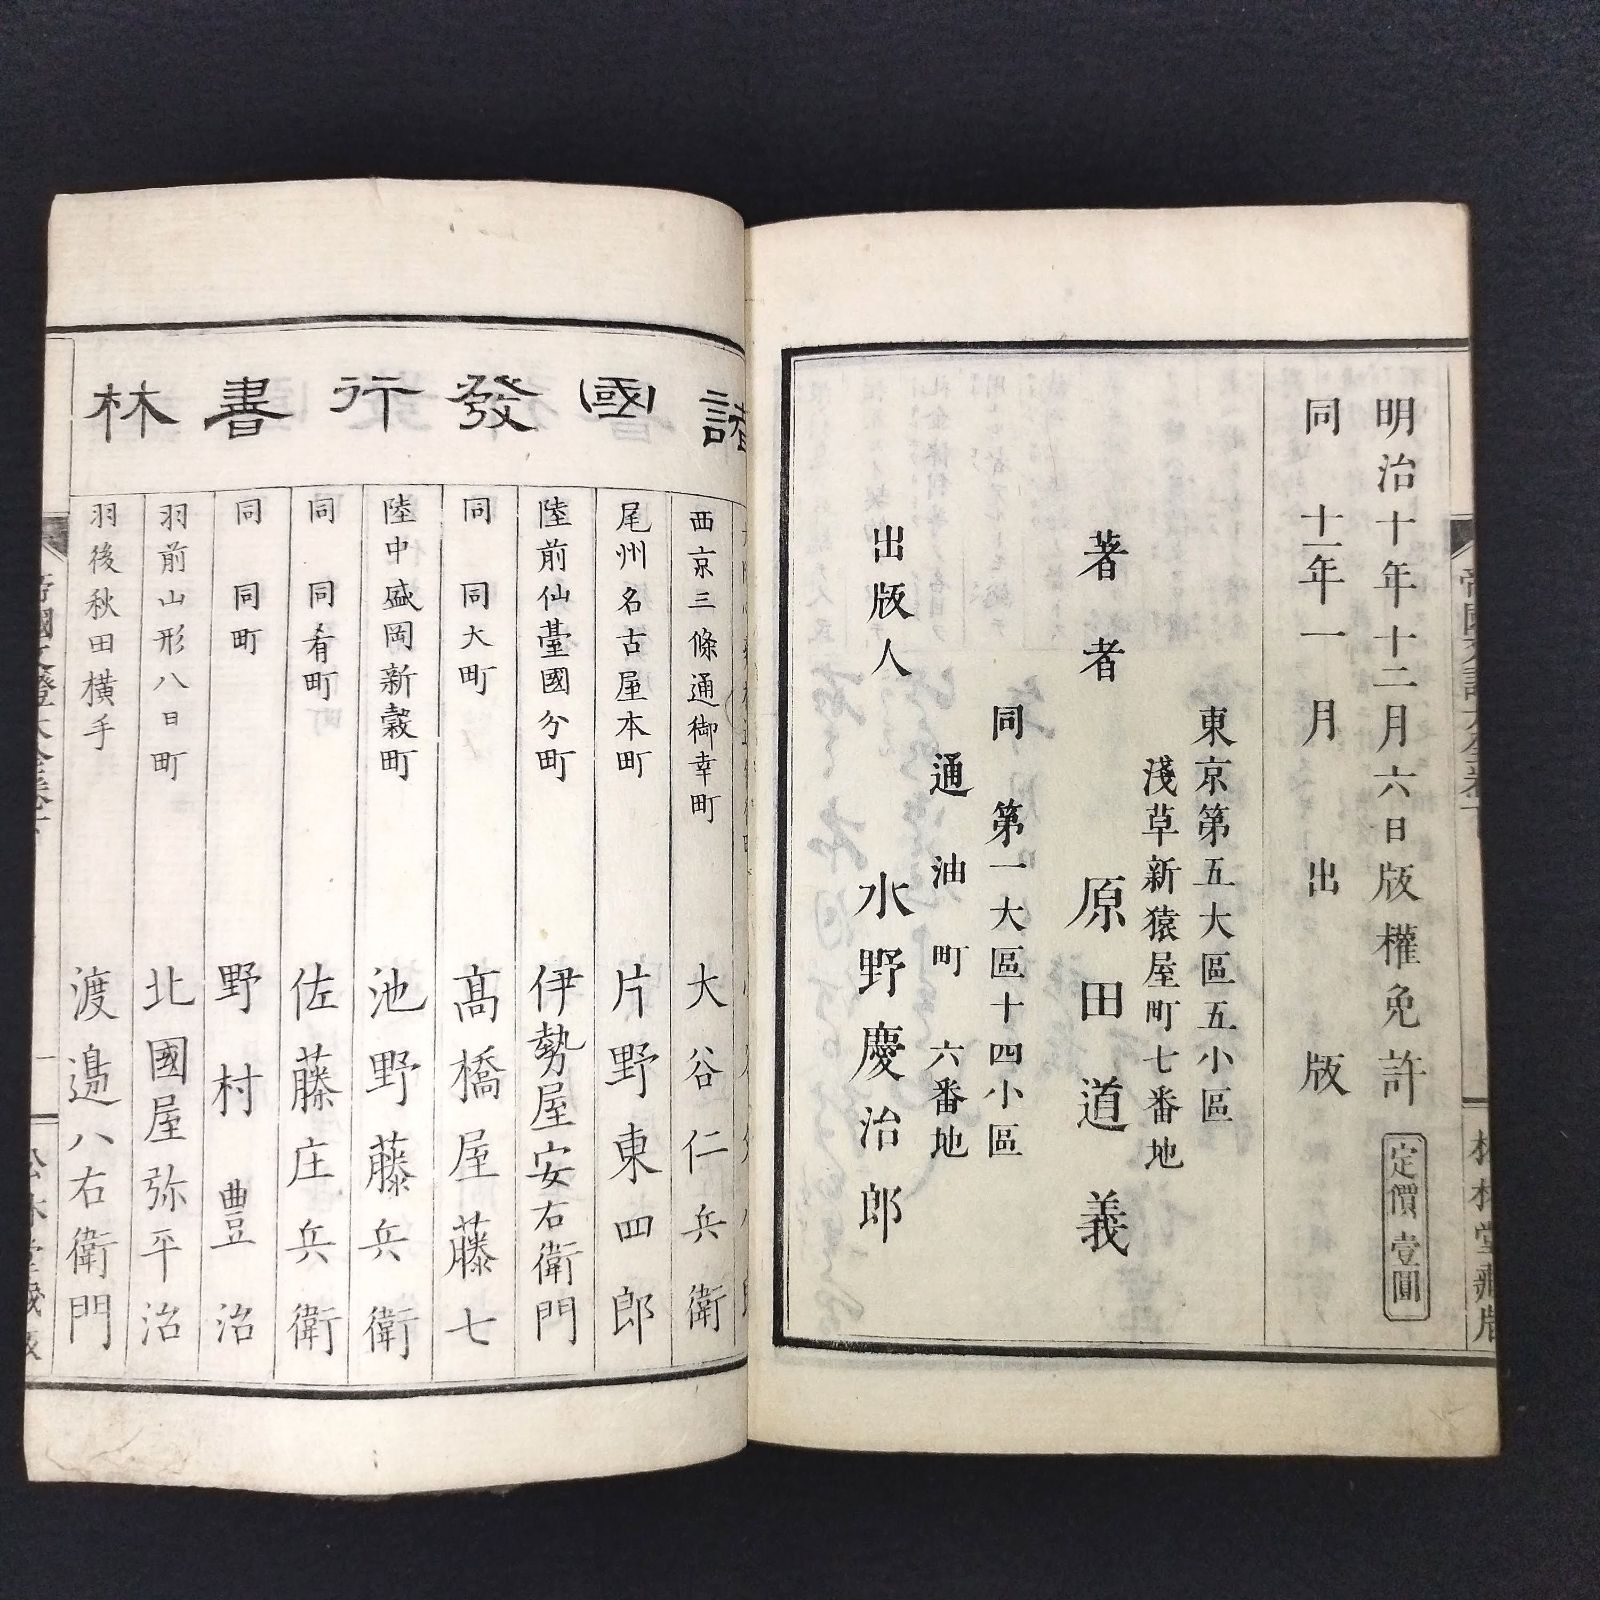 明治十年十二月六日版權免許
定價壹圓
同十一年一月出版
東京第五大區五小區
淺草新猿屋町七番地
著者 原田道義
同 第一大區十四小區
通油町六番地
出版人 水野慶治郎
諸國發行書林
西京三條通御幸町 大谷仁兵衛
尾州名古屋本町 片野東四郎
陸前仙臺國分町 伊勢屋安右衛門
同 同大町 髙橋屋藤七
陸中盛岡新穀町 池野藤兵衛
同 同肴町 佐藤庄兵衛
同 同町 野村豊治
羽前山形八日町 北國屋弥平治
羽後秋田横手 渡邉八右衛門